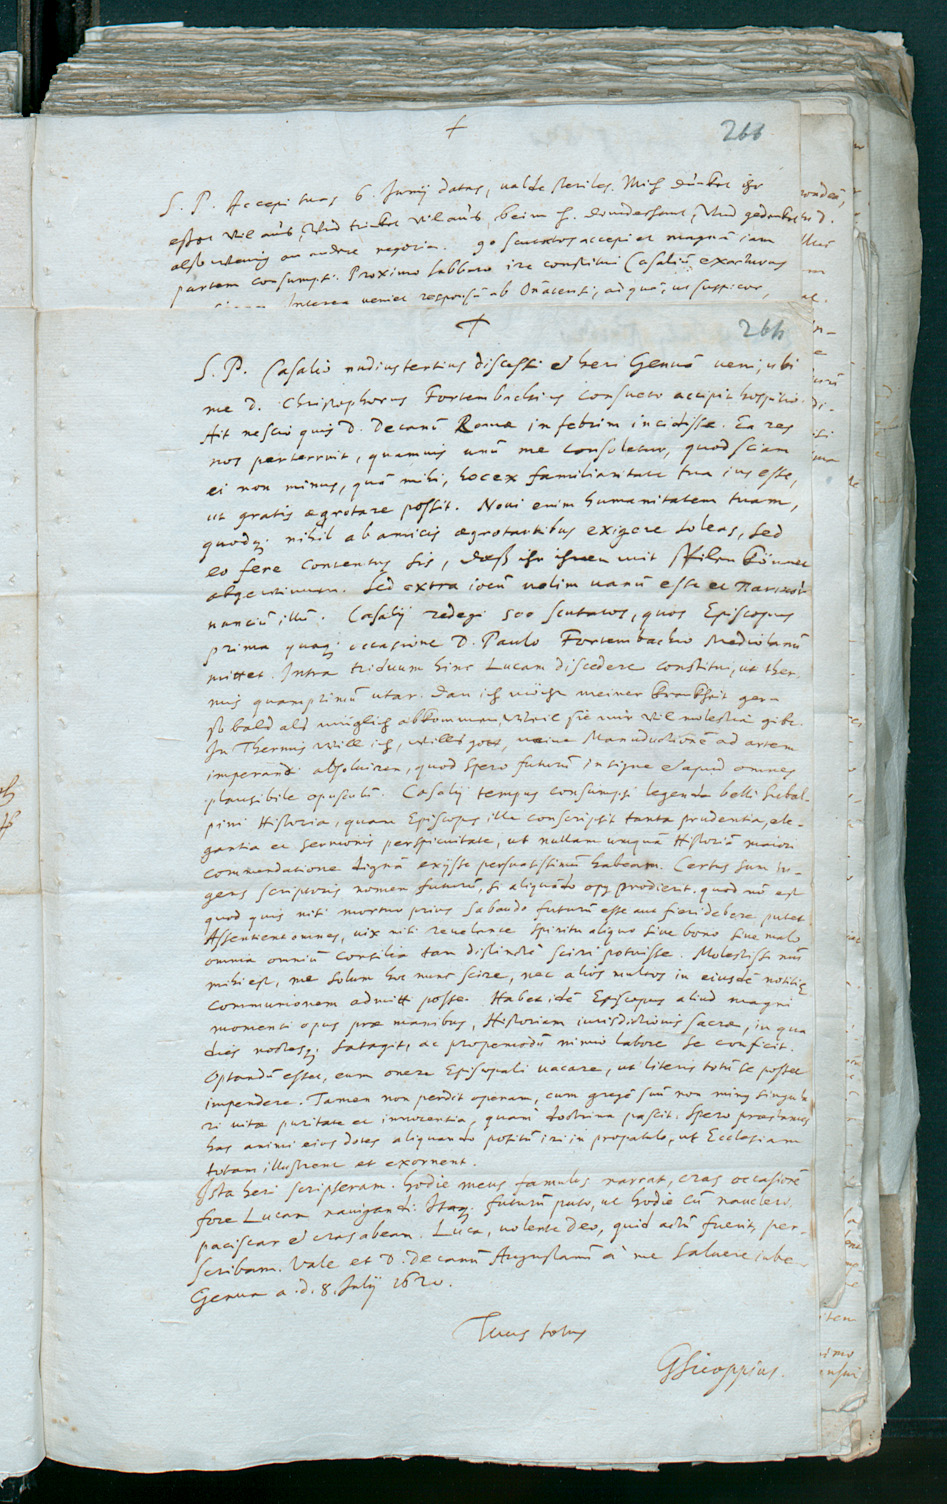 †
266
S. P. Accepi tuas 6. Junij datas, valde steriles. Mich dünket ihr
esset vil aus, und trinket vil aus, beim h. Domdechant, und gedenket
also wenig an andere negotia. 90 scutatos accepi et magnã iam
partem consumpsi. Proximo sabbato ire constitui Casaliũ, exacturus
Interea veniet respõsũ ab Oñatenti, ad quẽ, ut suspicor,
†
264
S. P. Casalio nudiustertius discessi & heri Genuã veni, ubi
me D. Christophorus Fortembachius consueto accipit hospitio.
Ait nescio quis D. Decanũ Romae in febrim incidisse. Ea res
nos perterruit, quamvis unũ me consoletur, quod sciam
ei non minus, quã mihi, hoc ex familiaritate tua ius esse,
ut gratis aegrotare possit. Novi enim humanitatem tuam,
quodq; nihil ab amicis aegrotantibus exigere soleas, sed
eo fere contentus sis, daß ihr ihnen mit Pillen können
abgewinnen. Sed extra iocũ velim vanũ esse et
nunciũ illũ. Casalij redegi 500 scutatos, quos Episcopus
prima quaq; occasione D. Paulo Fortembachio Mediolanũ
mittet. Intra triduum hinc Lucam discedere constitui, ut ther-
mis quamprimũ utar. Dan ich möchte meiner krankheit gern
so bald als müglich abkommen, weil sie mir vil molestia gibt.
In Thermis will ich, wills gott, meine Manuductionẽ ad artem
imperandi absolviren, quod spero futurũ insigne & apud omnes
plausibile opusculũ. Casalij tempus consumpsi legenda belli Subal-
pini Historia, quam Episcopus ille conscripsit tanta prudentia, ele-
gantia et sermonis perspicuitate, ut nullam unquã Historiã maiori
commendatione dignã exijsse persuasissimũ habeam. Certus sum in-
gens scriptoris nomen futurũ, si aliquãdo opus prodierit. quod nõ est
quod quis nisi mortuo prius Sabaudo futurũ esse aut fieri debere putet.
Assentient omnes, vix nisi revelante Spiritu aliquo sive bono sive malo
omnia omniũ consilia tam distincte sciri potuisse. Molestissimũ
mihi est, me solum hoc nunc scire, nec alios multos in eiusdẽ notitiae
communionem admitti posse. Habet idẽ Episcopus aliud magni
momenti opus prae manibus, Historiam iurisdictionis sacrae, in qua
dies noctesq; satagit, ac propemodũ nimio labore se conficit.
Optandũ esset, eum onere Episcopali vacare, ut literis totũ se posset
impendere. Tamen non perdit operam, cum gregẽ suũ non minus singula-
ri vitae puritate et innocentia, quam doctrina pascit. Spero praestantes
has animi eius dotes aliquando positũ iri in propatulo, ut Ecclesiam
totam illustrent et exornent.
Ista heri scripseram. Hodie meus famulus narrat, cras occasionẽ
fore Lucam navigandi. Itaq; futurũ puto, ut hodie cũ nauclero
paciscar & cras abeam. Luca, volente Deo, quid actũ fuerit, per-
scribam. Vale et D. Decanũ Augustanũ à me salvere iube.
Genua a. d. 8. Julij 1620.
Tuus totus
GScioppius.